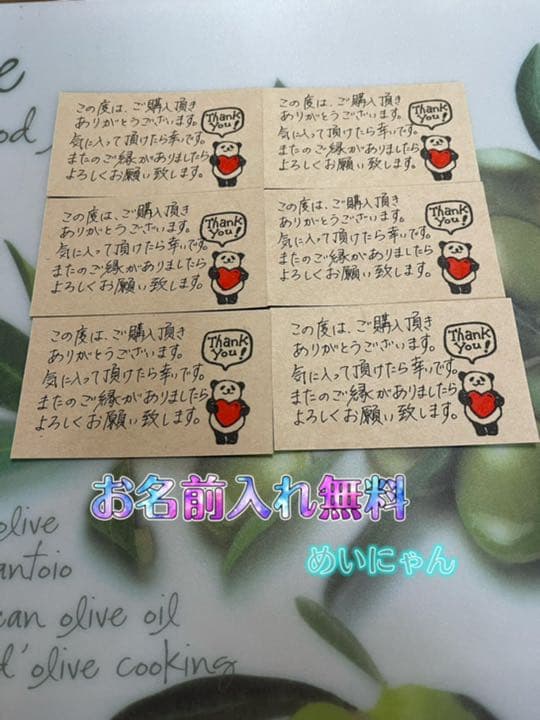 e
od,
この度は、ご購入頂き
ありがとうございます。
気に入って頂けたら幸いです。
またのご縁がありましたら
よろしくお願い致します。
Thank
you!
この度は、ご購入頂き
ありがとうございます。
気に入って頂けたら幸いです。
またのご縁がありましたら
よろしくお願い致します。
Thank
you!
この度は、ご購入頂き
ありがとうございます。
気に入って頂けたら幸いです。
またのご縁がありましたら
よろしくお願い致します。
Thank
you!
この度は、ご購入頂き
ありがとうございます。
気に入って頂けたら幸いです。
またのご縁がありましたら
よろしくお願い致します。
Thank
you!
この度は、ご購入頂き
ありがとうございます。
気に入って頂けたら幸いです。
またのご縁がありましたら
よろしくお願い致します。
Thank
you!
この度は、ご購入頂き
ありがとうございます。
気に入って頂けたら幸いです。
またのご縁がありましたら
よろしくお願い致します。
Thank
you!
お名前入れ無料
めいにゃん
olive
antoio
can olive oil
d'olive cooking